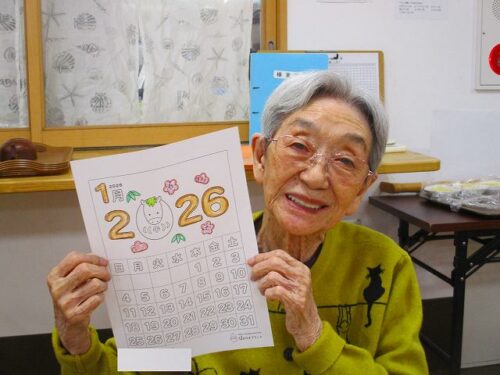 1月 2026
2026
日 月 火 水 木 金 土
1 2 3
4 5 6 7 8 9 10
11 12 13 14 15 16 17
18 19 20 21 22 23 24
25 26 27 28 29 30 31